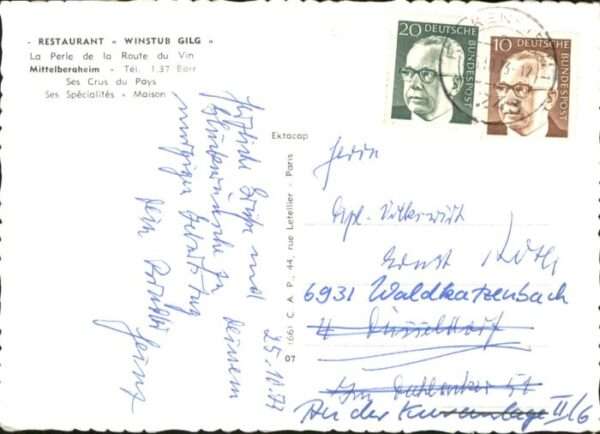 - RESTAURANT « WINSTUB GILG »
La Perle de la Route du Vin
Mittelbergheim - Tél. 1.37 Barr
Ses Crus du Pays
Ses Spécialités - Maison
Ektacop
C A P, 44, rue Letellier - Paris
1991
07
20
DEUTSCHE BUNDESPOST
10
DEUTSCHE BUNDESPOST
25.10.73
Herzliche Grüße und
Glückwünsche zu
Deinem
Geburtstag
Dein
Heinz
Herrn
Dipl. Volkswirt
Ernst
6931 Waldkatzenbach
4 Düsseldorf
51
An der Kuranlage II/6